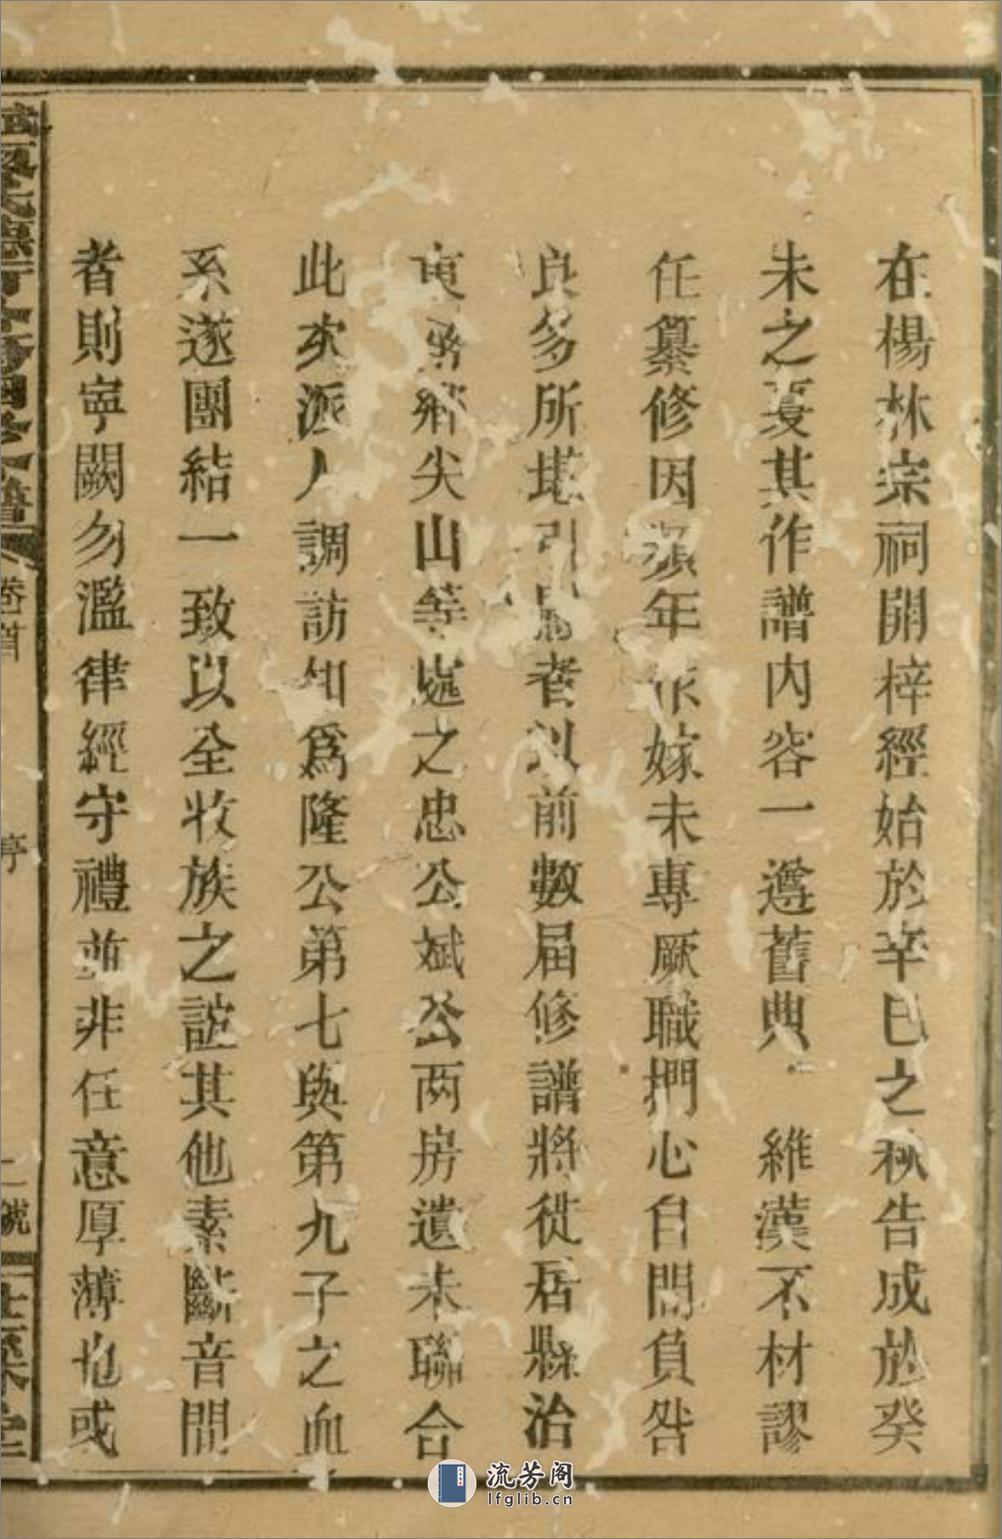 在楊林宗祠開梓經始於辛巳之秋告成於癸
未之夏其作譜內容一遵舊典．維漢不材謬
任纂修因頻年作嫁未專厥職捫心自問負咎
良多所堪引慰者以前數届修譜將徙居縣治
東鄉尖山等處之忠公斌公两房遺未聯合
此次派人調訪知為隆公第七與第九子之血
系遂團結一致以全牧族之誼其他素斷音問
者則寧闕勿濫律經守禮並非任意厚薄也或
卷首
序
二號
流芳阁
lfglib.cn